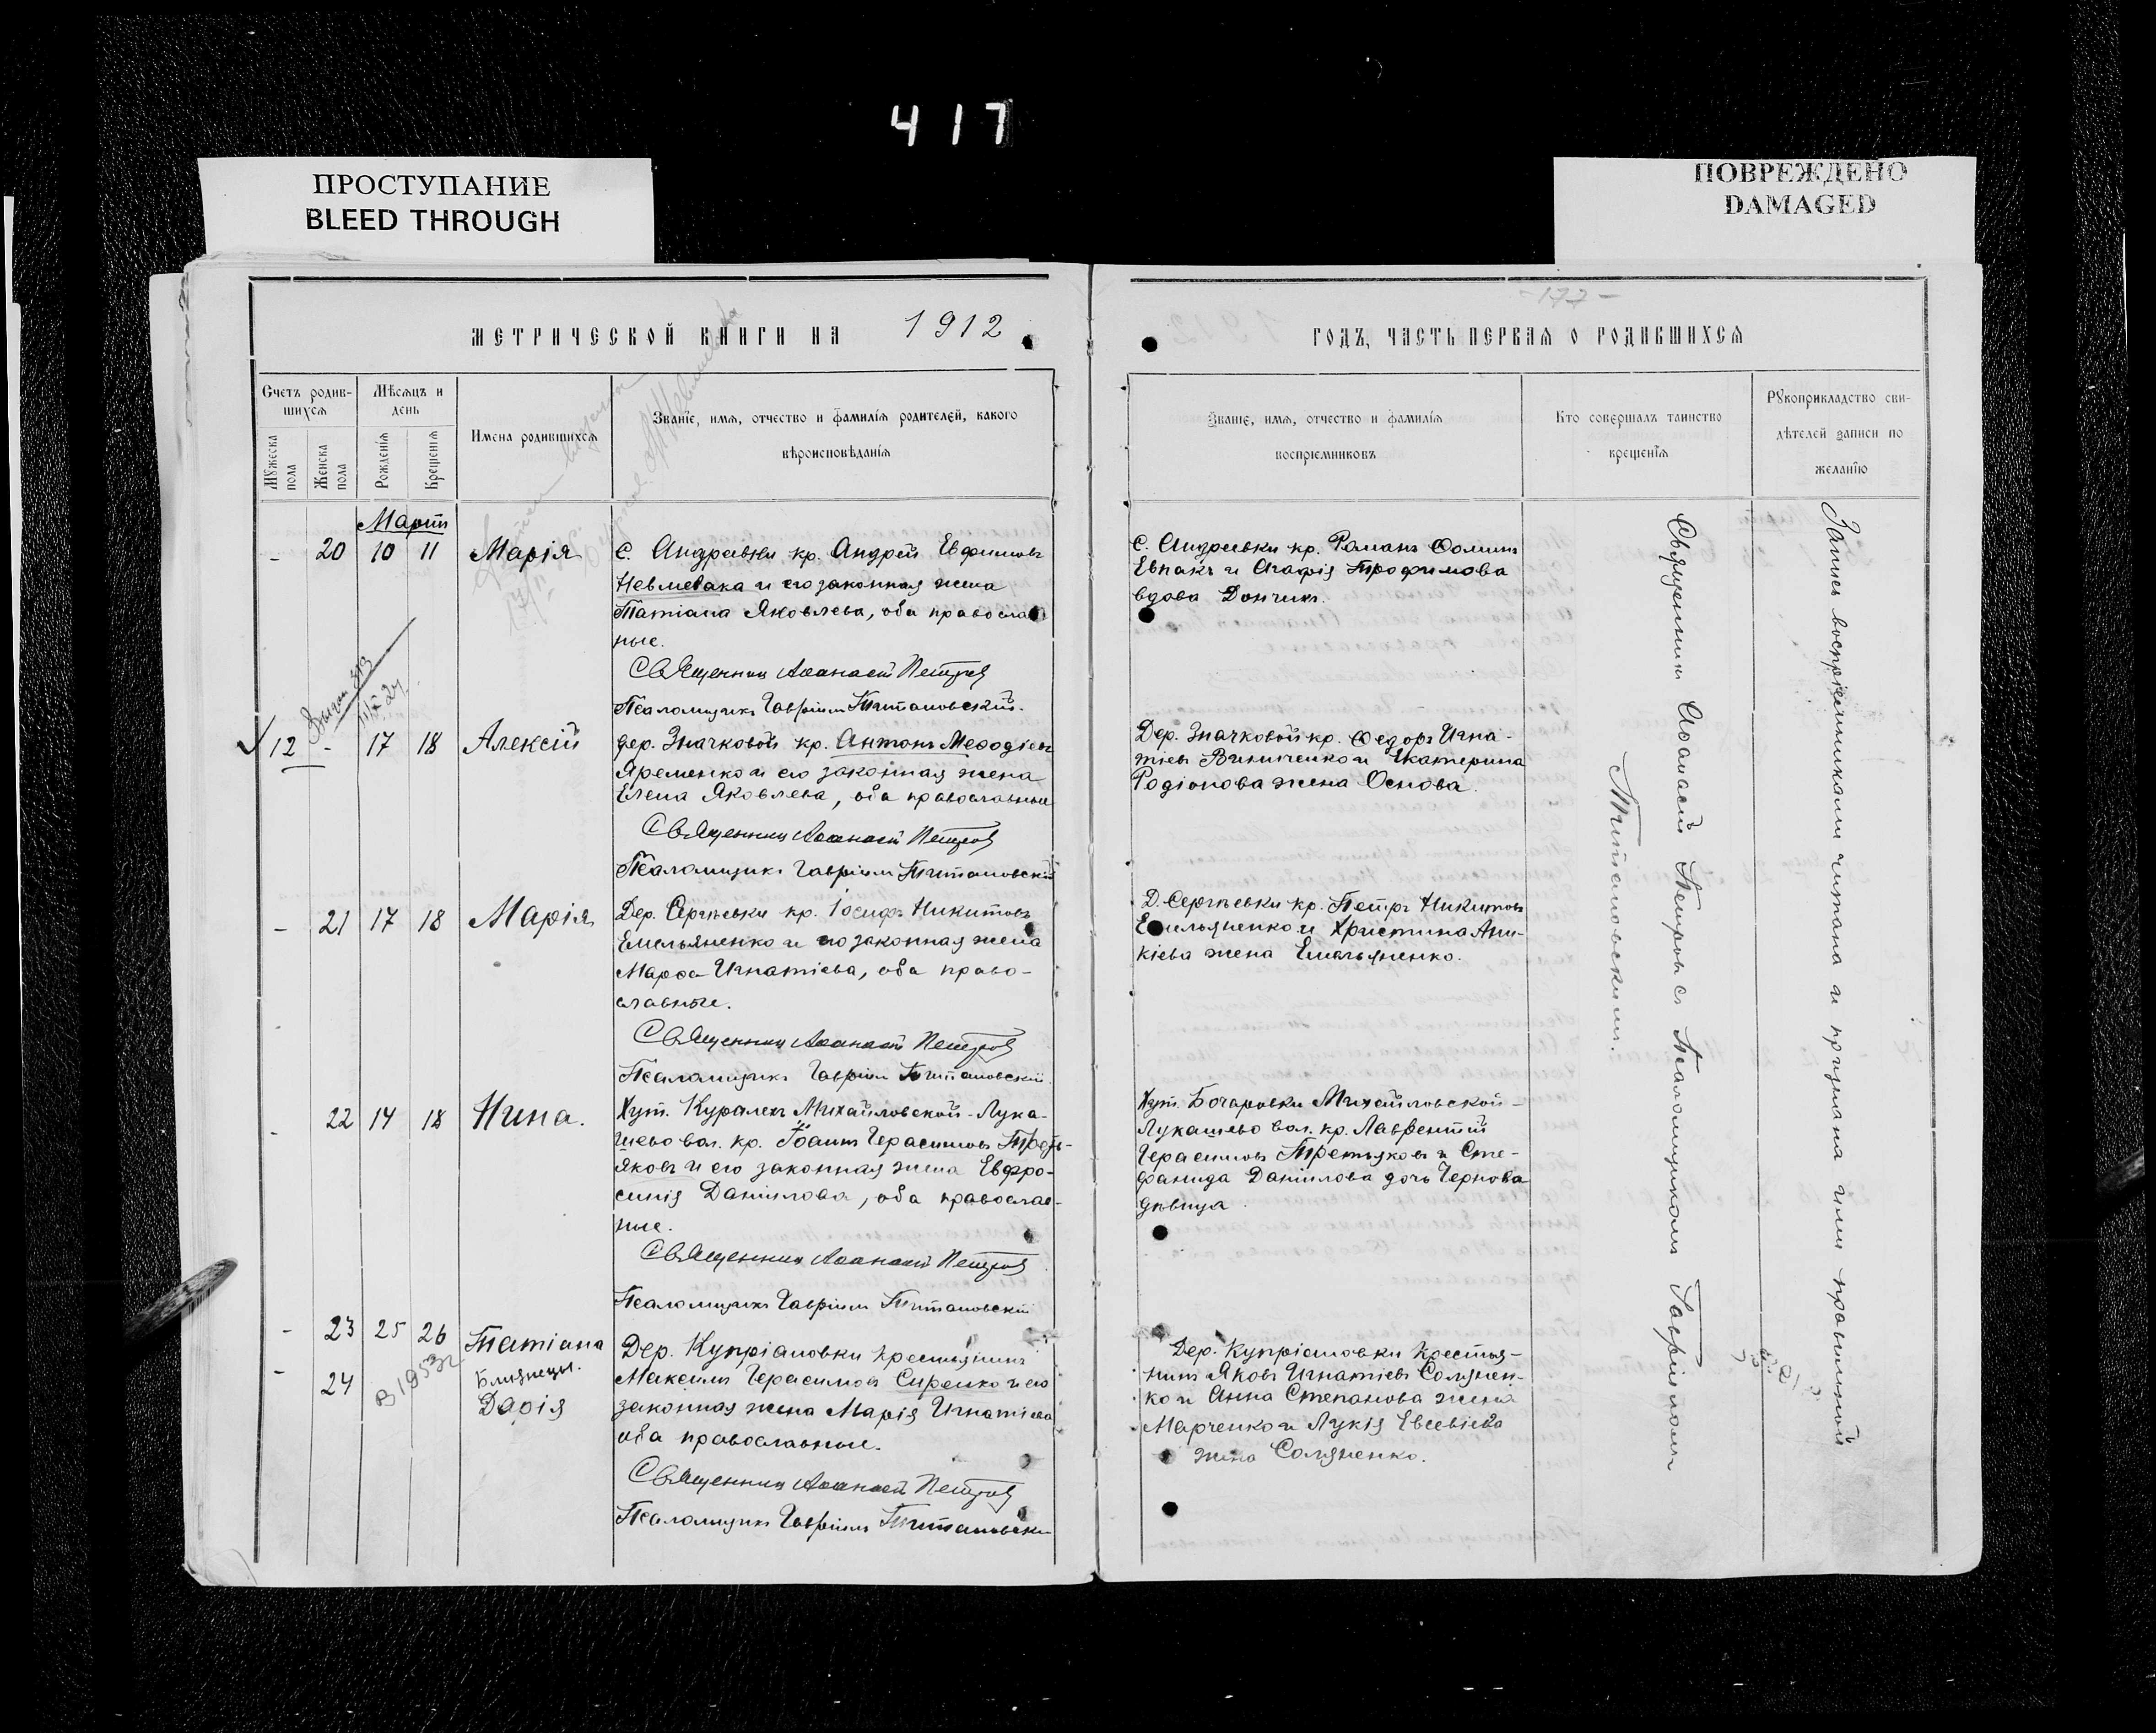 417
ПРОСТУПАНИЕ
BLEED THROUGH
ПОВРЕЖДЕНО
DAMAGED
МЕТРИЧЕСКОЙ КНИГИ НА 1912
Счетъ родив-
шихся
Мѣсяцъ и
день
Мужеска
пола
Женска
пола
Рожденія
Крещенія
Имена родившихся
Званіе, имя, отчество и фамилія родителей, какого
вѣроисповѣданія
Мартъ
- 20 10 11 Марія
С. Андреевки кр. Андрей Евфимовъ
Невмевака и его законная жена
Татіана Яковлева, оба православ
ные.
Священникъ Аѳанасій Петровъ
Псаломщикъ Гавріилъ Титановскій.
12 - 17 18 Алексій
дер. Значковой кр. Антонъ Меѳодіевъ
Яременко и его законная жена
Елена Яковлева, оба православные
Священникъ Аѳанасій Петровъ
Псаломщикъ Гавріилъ Титановскій
- 21 17 18 Марія
Дер. Сергѣевки кр. Іосифъ Никитовъ
Емельяненко и его законная жена
Марѳа Игнатіева, оба право-
славные.
Священникъ Аѳанасій Петровъ
Псаломщикъ Гавріилъ Титановскій
- 22 14 18 Нина.
Хут. Куралехъ Михайловской-Лука-
шево вол. кр. Іоаннъ Герасимовъ Треть-
яковъ и его законная жена Евфро-
синія Даніилова, оба православ-
ные.
Священникъ Аѳанасій Петровъ
Псаломщикъ Гавріилъ Титановскій
- 23 25 26 Татіана
Близнецы.
- 24 Дарія
В 1953г
Дер. Купріановки крестьянинъ
Максимъ Герасимовъ Сиренко и его
законная жена Марія Игнатіева
оба православные.
Священникъ Аѳанасій Петровъ
Псаломщикъ Гавріилъ Титановскій
-177-
ГОДЪ, ЧАСТЬ ПЕРВАЯ О РОДИВШИХСЯ
Званіе, имя, отчество и фамилія
воспріемниковъ
Кто совершалъ таинство
крещенія
Рукоприкладство сви-
дѣтелей записи по
желанію
С. Андреевки кр. Романъ Ѳоминъ
Евпакъ и Агафія Трофимова
вдова Дончикъ.
Дер. Значковой кр. Ѳедоръ Игна-
тіевъ Винниченко и Екатерина
Родіонова жена Основа.
Д. Сергѣевки кр. Петръ Никитовъ
Емельяненко и Христина Ани-
кіева жена Емельяненко.
Хут. Бочаровки Михайловской-
Лукашево вол. кр. Лаврентій
Герасимовъ Третьяковъ и Сте-
фанида Даніилова дочь Чернова
дѣвица.
Дер. Купріановки Крестья-
нинъ Яковъ Игнатіевъ Солянен-
ко и Анна Степанова жена
Марченко и Лукія Евсевіева
жена Соляненко.
Священникъ Аѳанасій Петровъ съ Псаломщикомъ Гавріиломъ
Титановскимъ.
Запись воспріемниками читана и признана ими правильной